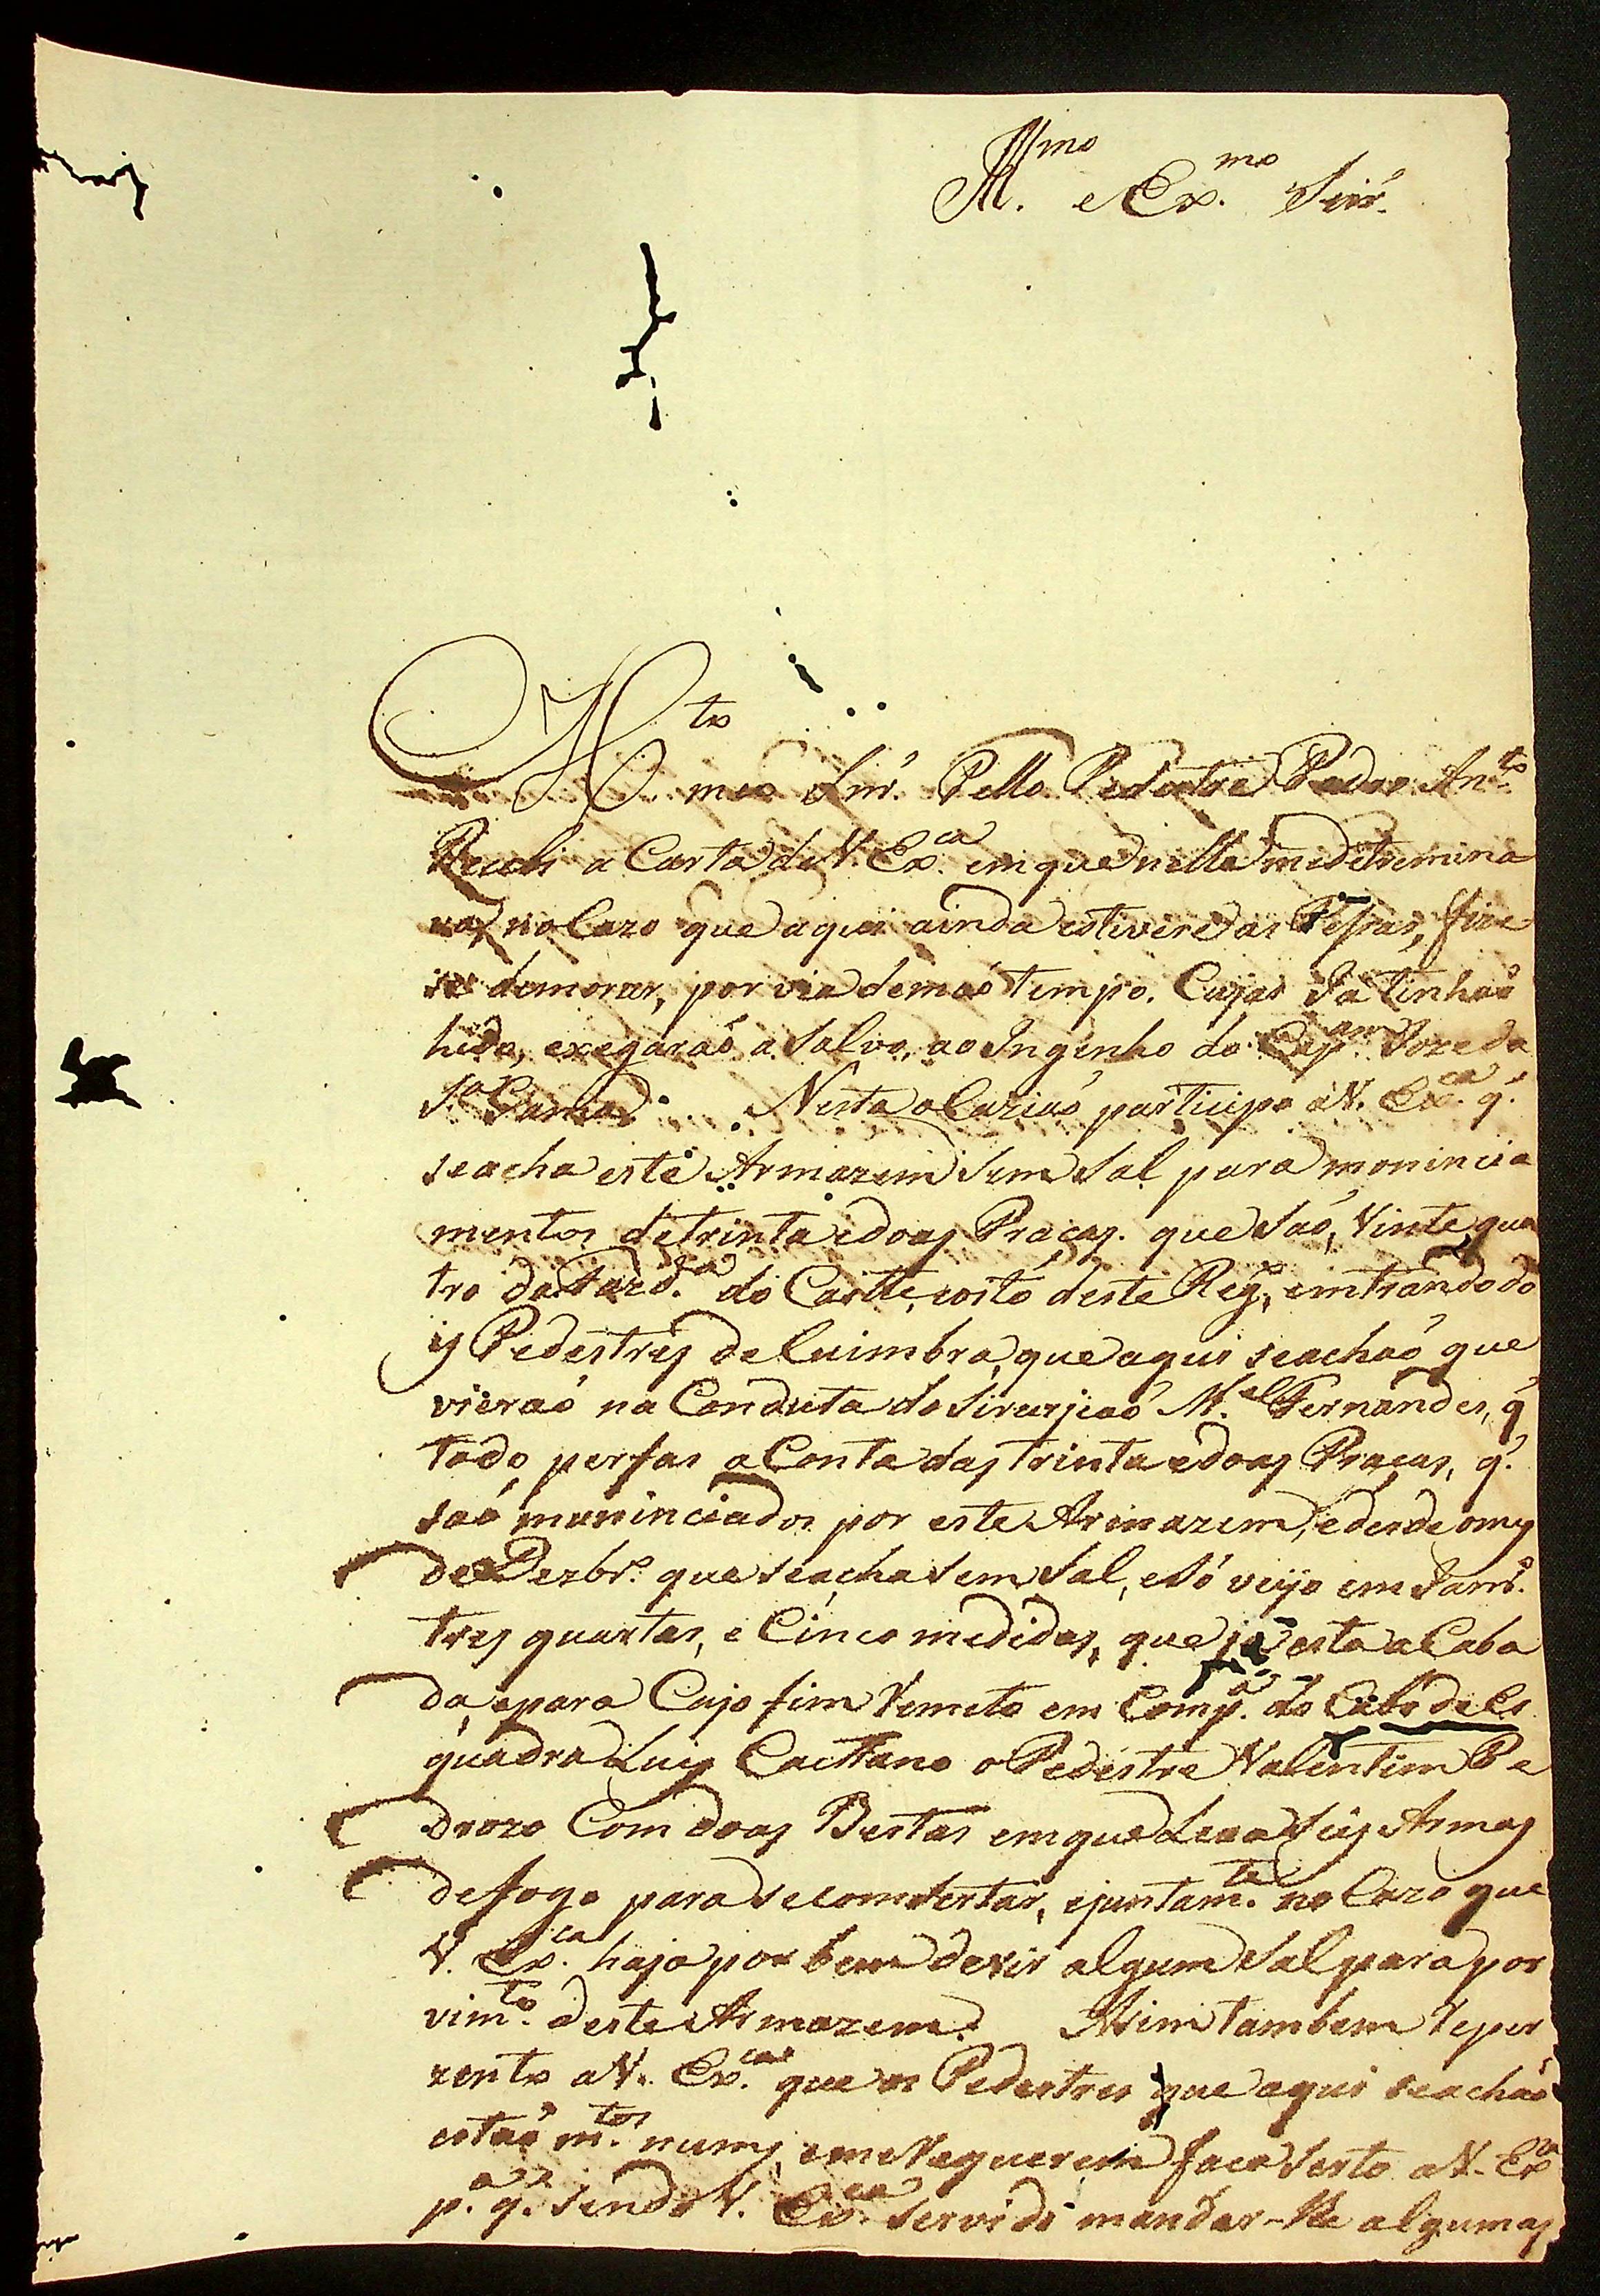 Ill.mo e Ex.mo Snr.
M.to meo Snr. Pello Pedestre Pedro An.to
Recebi a Carta de V. Ex.ca em que nella me detremina
va, no Cazo que aqui ainda estivere as Pessas, fize
se demorar, por via de mao tempo. Cujas Ja tinhaõ
hido, exegaraõ a Salvo, ao Ingenho do Cap.am Joze da
S.a Gama. Nesta oCaziaõ participo a V. Ex.ca q.
seacha este Armazem Sem Sal para monincia
mentos de trinta e doas Praças. que Saõ, Vinte qua
tro da Fazd.a do Caette, e oito deste Reg.o, emtrando do
is Pedestres de Cuimbra, que aqui seachaõ que
vieraõ na Conduta do Sirurjiaõ M.el Fernandes, q
todo perfas a Conta das trinta e doas Praças, q.
saõ muninciados por este Armazem, e desde o mes
de Dezbr.o que seacha sem Sal, e Só veyo em Janr.o
tres quartas, e Cinco medidas, que já esta aCaba
da, e para Cujo fim Remeto em Comp.a do Cabo de Es
quadra Luis Caettano o Pedestre Valentim Pe
drozo Com doas Bestas em que Leva Seis Armas
de fogo para se comsertar, e juntam.te no Cazo que
V. Ex.ca haja por bem de vir algum Sal para por
vim.to deste Armazem. Asim tambem Reper
zento a V. Ex.ca que os Pedestres que aqui seachaõ
estaõ m.tos nuus, e me Requerem faca Serto a V. Ex.a
p.a q. Sendo V. Ex.ca Servido mandar-lhe algumas